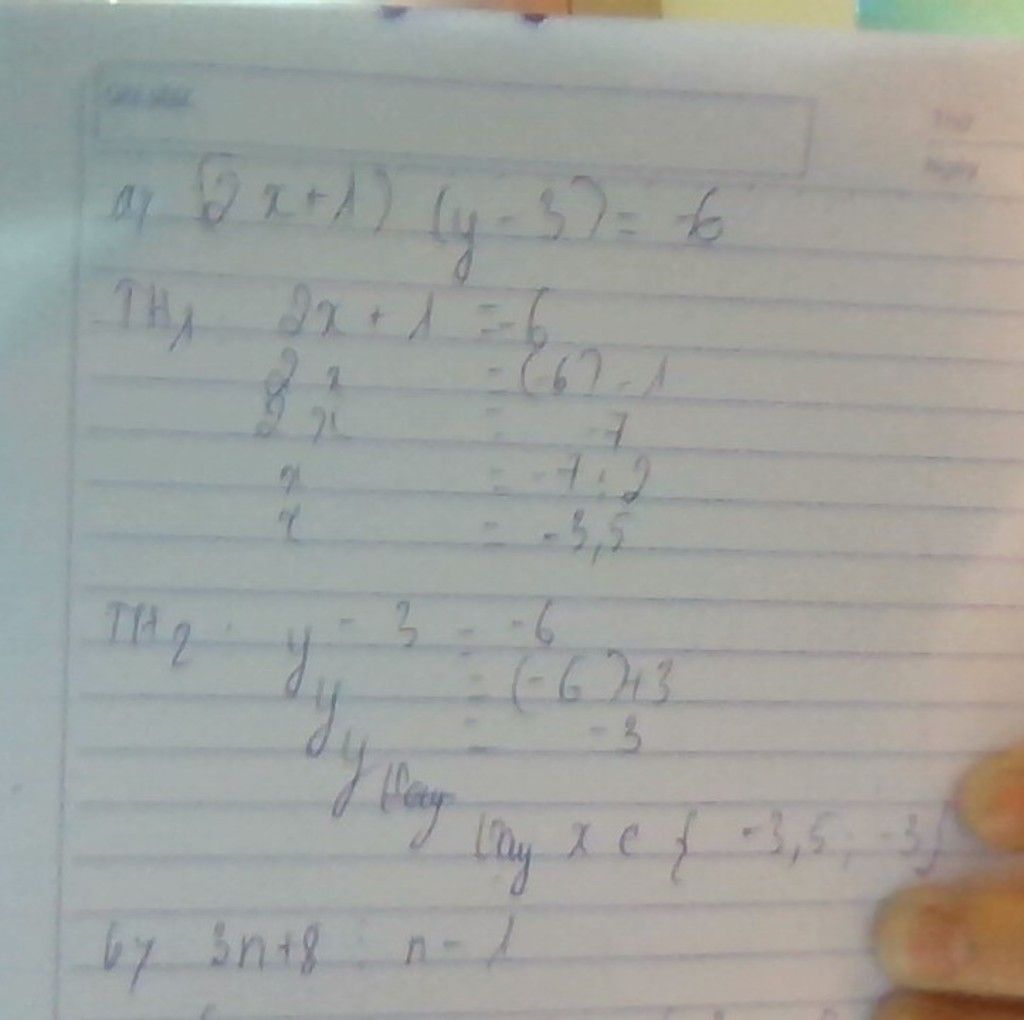 a, (2x+1) (y-3) = -6
TH1 2x + 1 = -6
2x = (-6) - 1
2x = -7
x = -7 : 2
x = -3,5
TH2 y - 3 = -6
y = (-6)+3
y = -3
y
Vậy x ∈ { -3,5 ; -3}
b, 3n+8 ⋮ n - 1